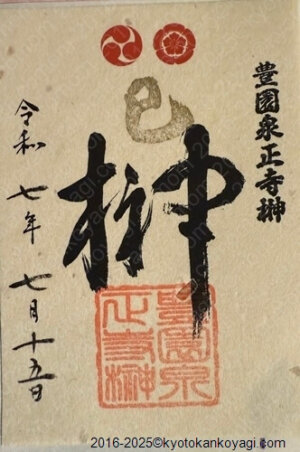 豊園泉正寺榊
巳
榊
豊園泉
正寺榊
令和七年七月十五日
2016-2025©kyotokankoyagi.com